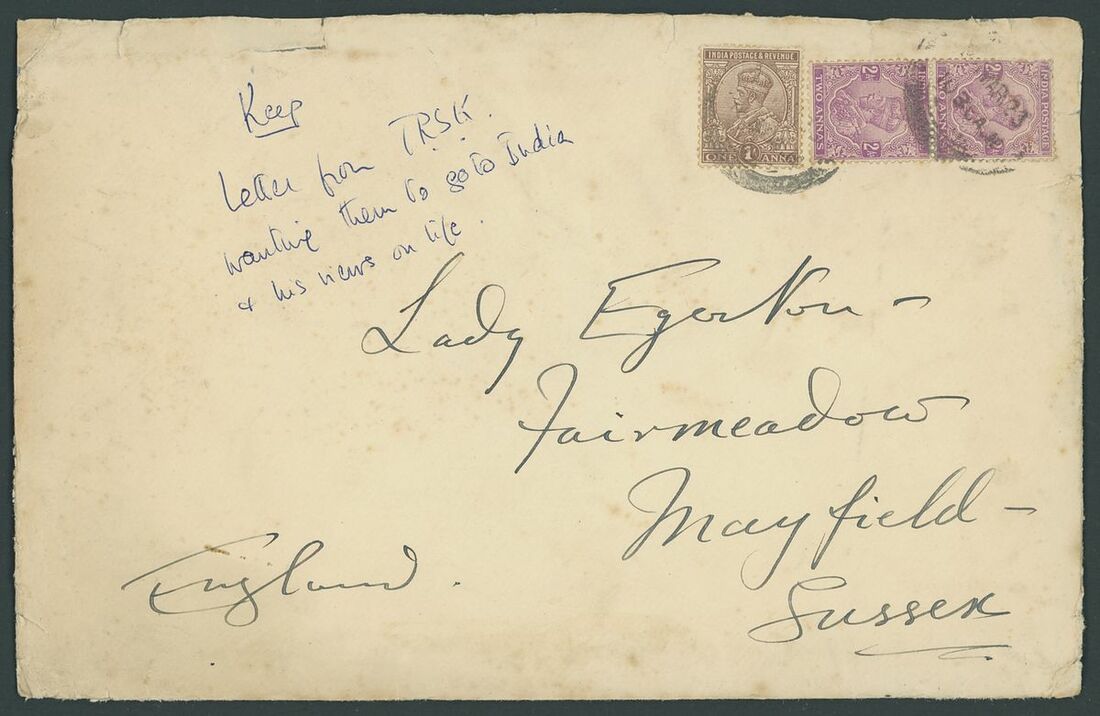 Keep
Letter from T.R.S.K.
wanting them to go to India
& his views on life.
INDIA POSTAGE & REVENUE
1
ONE ANNA
2As
TWO ANNAS
2As
TWO ANNAS
INDIA POSTAGE
MAR 23
Lady Egerton –
Fairmeadow
Mayfield –
Sussex
England.